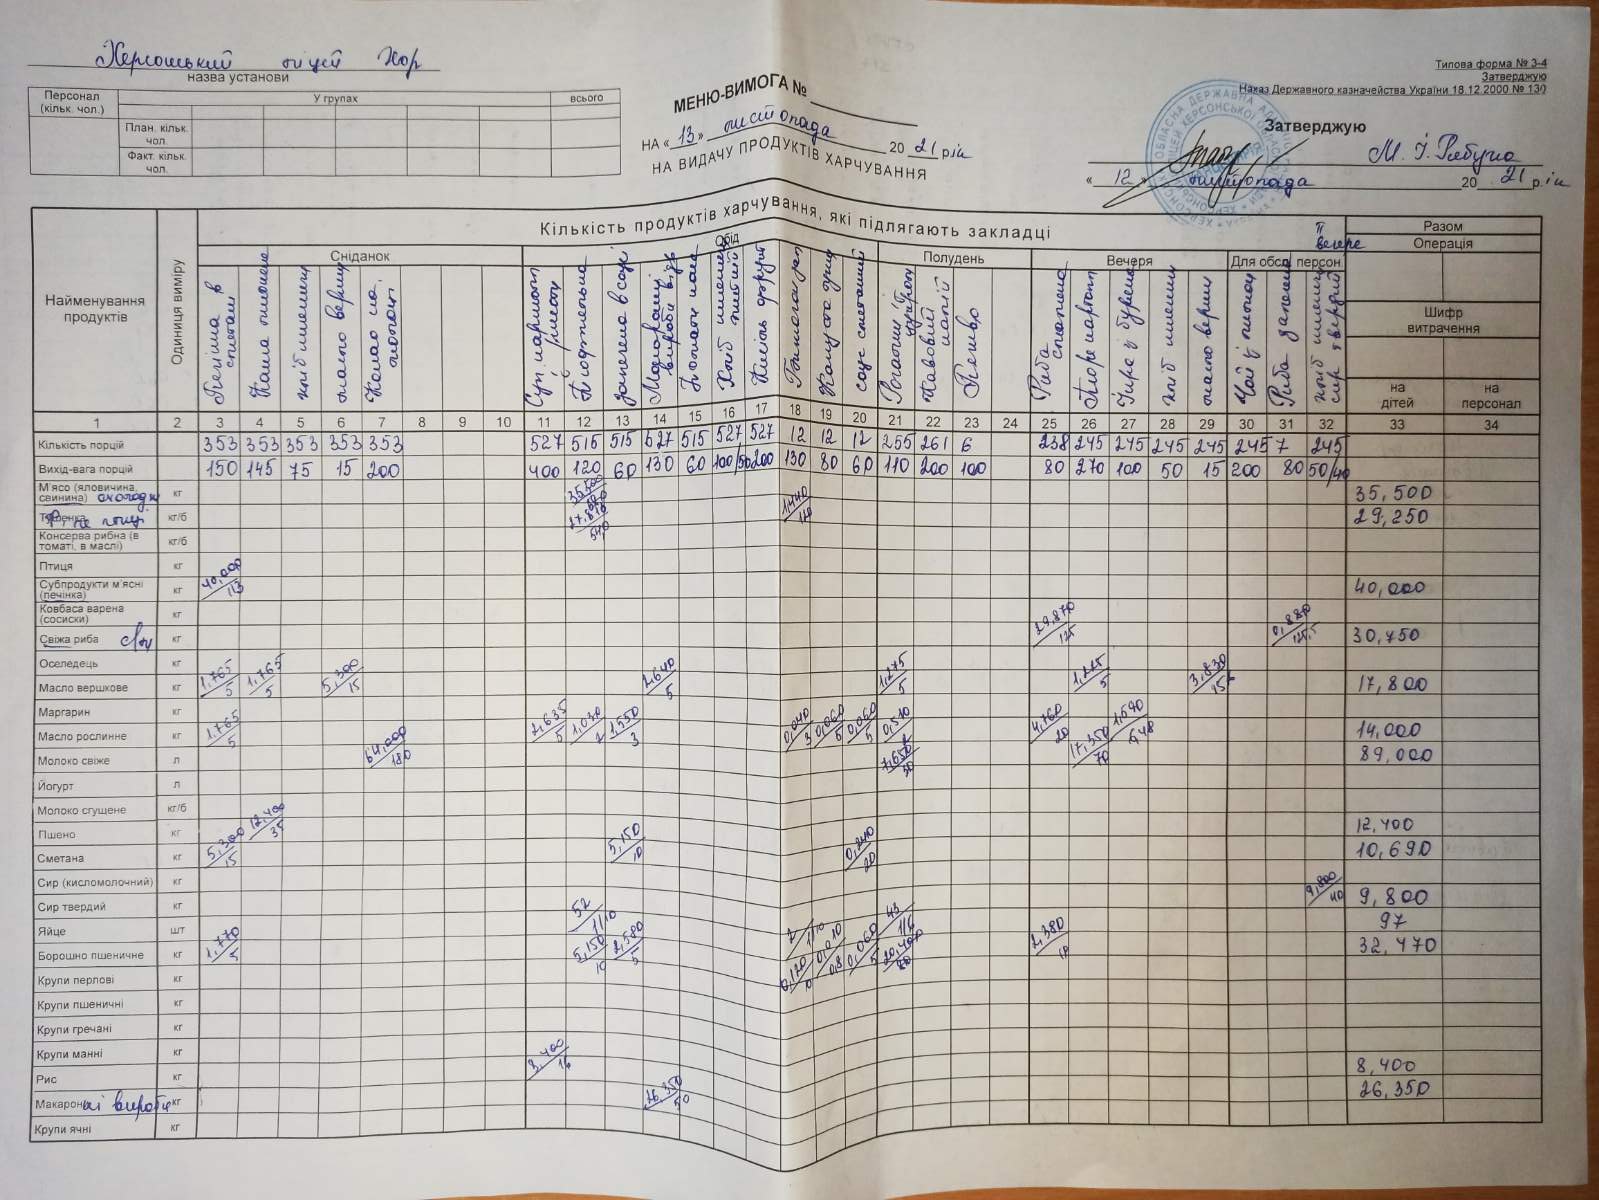 Херсонський ліцей ХОР
назва установи
Персонал (кільк. чол.) У групах всього
План. кільк. чол.
Факт. кільк. чол.
МЕНЮ-ВИМОГА №
НА «13» листопада 2021 рік
НА ВИДАЧУ ПРОДУКТІВ ХАРЧУВАННЯ
Типова форма № З-4
Затверджую
Наказ Державного казначейства України 18.12.2000 № 130
Затверджую
«12» листопада 2021 рік
Найменування продуктів
Одиниця виміру
Кількість продуктів харчування, які підлягають закладці
Разом
Операція
Сніданок Обід Полудень Вечеря Для обсл. персон. II вечеря
Шифр витрачення
на дітей
на персонал
Печінка в сметані
Каша пшоняна
хліб пшен
масло верш
Какао на
Суп
Хліб пшен
соус сметаний
Риба
Пюре картоп
хліб пшен
масло верш
Риба
сир твердий
1 2 3 4 5 6 7 8 9 10 11 12 13 14 15 16 17 18 19 20 21 22 23 24 25 26 27 28 29 30 31 32 33 34
Кількість порцій 353 353 353 353 353 527 515 515 527 515 527 527 12 12 12 255 261 6 238 245 245 245 245 245 7 245
Вихід-вага порцій 150 145 75 15 200 400 120 60 130 60 100/50 200 130 80 60 110 200 100 80 270 100 50 15 200 80 50/40
М'ясо (яловичина, свинина) кг 35,500 35,500
кг/б 1,440 29,250
Консерва рибна (в томаті, в маслі) кг/б
Птиця кг
Субпродукти м'ясні (печінка) кг 40,000/113 40,000
Ковбаса варена (сосиски) кг
Свіжа риба кг 29,870/125 0,880/125,5 30,750
Оселедець кг
Масло вершкове кг 1,765/5 1,765/5 5,300/15 2,640/5 1,275/5 1,225/5 3,830 17,800
Маргарин кг
Масло рослинне кг 1,765/5 2,635/5 1,030/2 1,550/3 0,040/3 0,060/5 0,060/5 0,510/2 4,760/20 1,590 14,000
Молоко свіже л 64,000/180 7,650/30 17,350/70 89,000
Йогурт л
Молоко сгущене кг/б
Пшено кг 12,400/35 12,400
Сметана кг 5,300/15 5,150/10 0,240/20 10,690
Сир (кисломолочний) кг
Сир твердий кг 9,800/40 9,800
Яйце шт 52/1/10 2/1/10 43/1/6 97
Борошно пшеничне кг 1,770/5 5,150/10 2,580/5 0,120 0,010 0,060/5 20,400/80 2,380/10 32,470
Крупи перлові кг
Крупи пшеничні кг
Крупи гречані кг
Крупи манні кг
Рис кг 8,400/16 8,400
Макаронні вироби кг 26,350/50 26,350
Крупи ячні кг